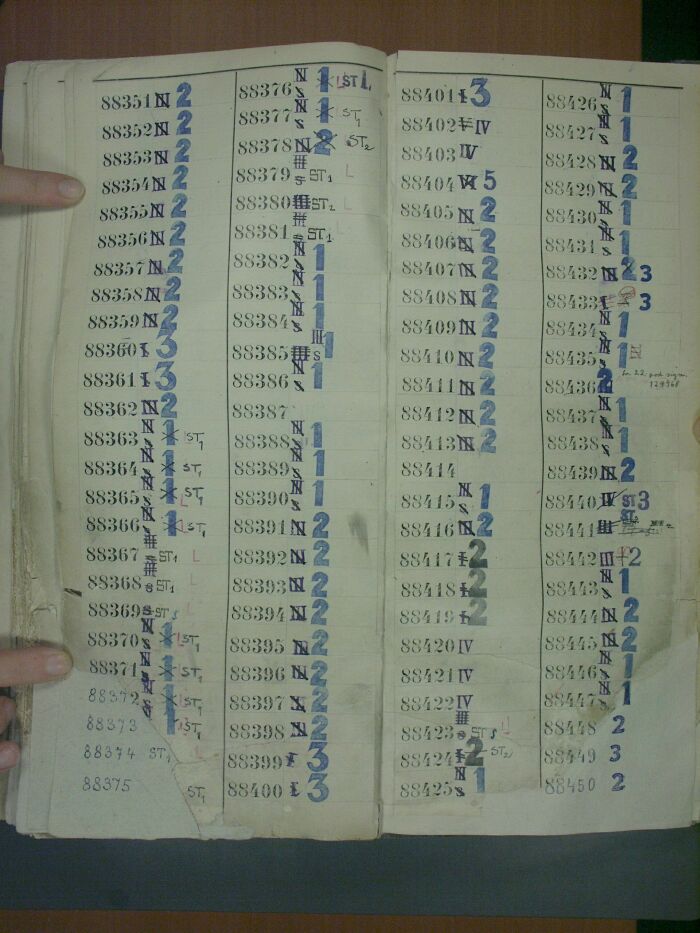 88351 N 2
88352 N 2
88353 N 2
88354 N 2
88355 N 2
88356 N 2
88357 N 2
88358 N 2
88359 N 2
88360 I 3
88361 I 3
88362 N 2
88363 N s 1 ST1
88364 N s 1 ST1
88365 N s 1 ST1
88366 N s 1 ST1
88367 s ST1 L
88368 s ST1 L
88369 s ST s L
88370 N s 1 ST1
88371 N s 1 ST1
88372 N s 1 ST1
88373 1 ST1
88374 ST1 L
88375 ST1
88376 N s 1 ST1
88377 N s 1 ST1
88378 N 2 ST2
88379 s ST1 L
88380 ST2 L
88381 s ST1
88382 N s 1
88383 N s 1
88384 N s 1
88385 III s 1
88386 N s 1
88387
88388 N s 1
88389 N s 1
88390 N s 1
88391 N 2
88392 N 2
88393 N 2
88394 N 2
88395 N 2
88396 N 2
88397 N 2
88398 N 2
88399 I 3
88400 I 3
88401 I 3
88402 IV
88403 IV
88404 VI 5
88405 N 2
88406 N 2
88407 N 2
88408 N 2
88409 N 2
88410 N 2
88411 N 2
88412 N 2
88413 N 2
88414
88415 N s 1
88416 N 2
88417 I 2
88418 I 2
88419 I 2
88420 IV
88421 IV
88422 IV
88423 s ST s
88424 I 2 ST2
88425 N s 1
88426 N s 1
88427 N s 1
88428 N 2
88429 N 2
88430 N s 1
88431 N s 1
88432 N 2 3
88433 I 3
88434 N s 1
88435 N s 1
88436 N 2 pod sygn.
88437 N s 1
88438 N s 1
88439 N 2
88440 IV ST 3
88441 III ST2
88442 III 2
88443 N s 1
88444 N 2
88445 N 2
88446 N s 1
88447 N s 1
88448 2
88449 3
88450 2